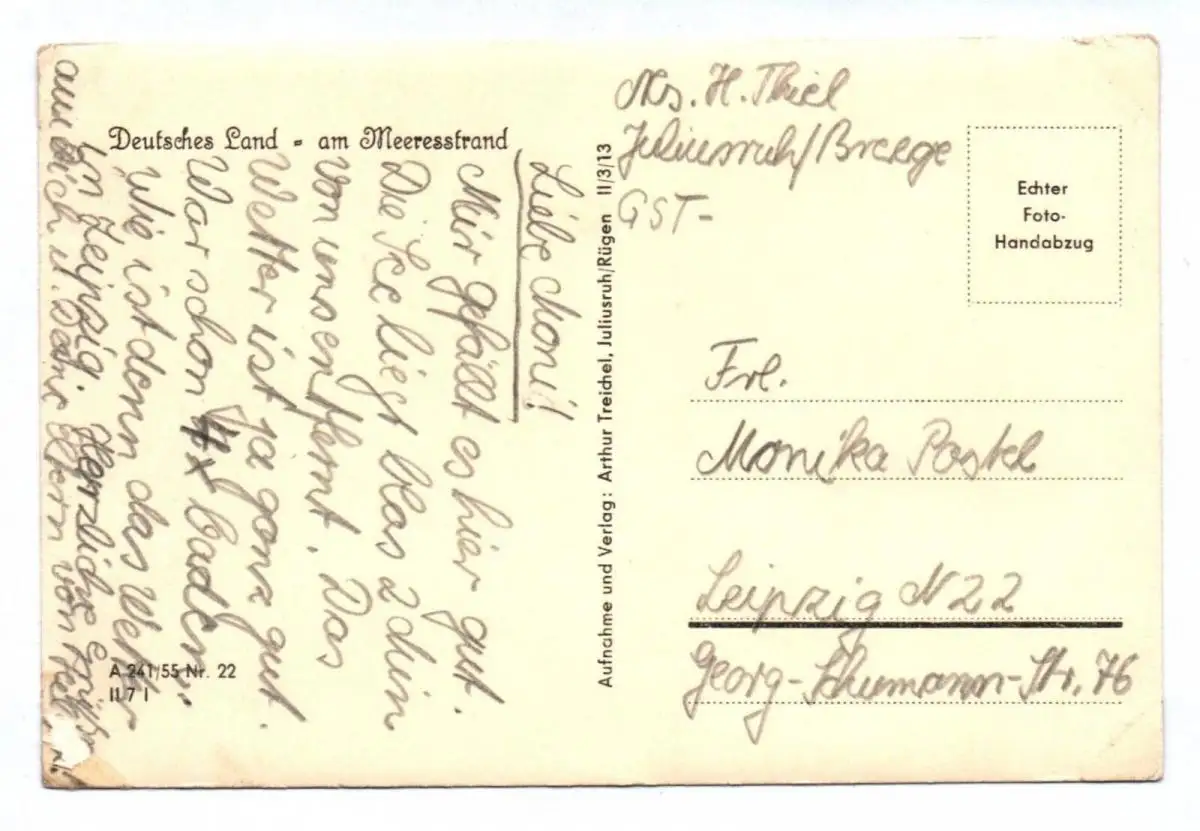 Deutsches Land - am Meeresstrand
Liebe Moni!
Mir gefällt es hier gut.
Die See liegt blos 2 min
von uns entfernt. Das
Wetter ist ja ganz gut.
War schon 4x baden.
Wie ist denn das Wetter
in Leipzig. Herzliche Grüße
an Dich u. Deine Eltern von
A 241/55 Nr. 22
II 7 I
Aufnahme und Verlag: Arthur Treichel, Juliusruh/Rügen II/3/13
H. Thiel
Juliusruh/Breege
GST-
Echter
Foto-
Handabzug
Frl.
Monika Postel
Leipzig N 22
Georg-Schumann-Str. 76